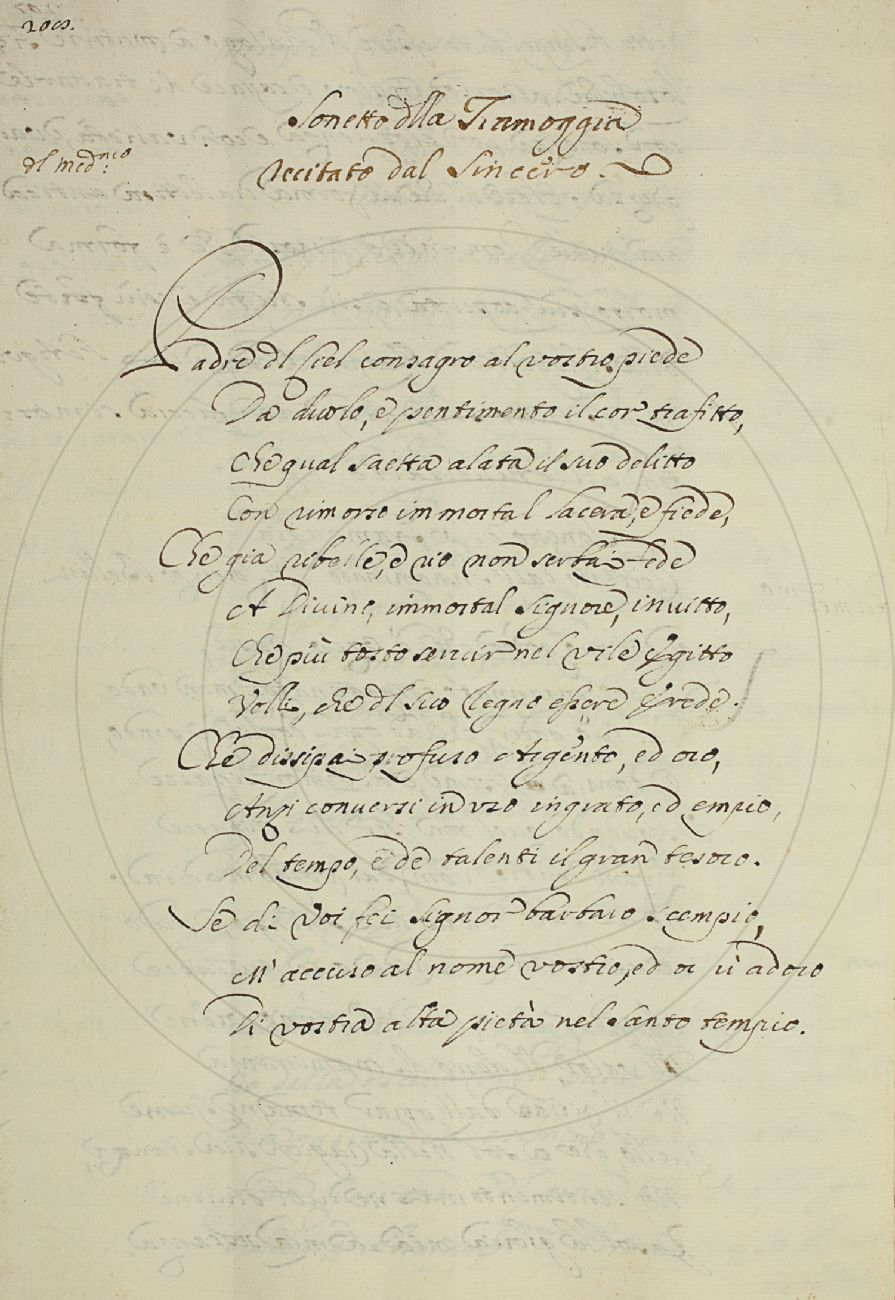 Sonetto dlla Tramoggia
dl med.mo
recitato dal Sincero.
Padre dl Ciel consagro al vostro piede
Da duolo, e pentimento il cor trafitto,
Che qual saetta alata il suo delitto
Con rimorso immortal lacera, e fiede,
Che già ribelle, e rio non serbai fede
A Divino, immortal Signore, invitto,
Che più tosto servir nel vile Egitto
Volli, che dl suo Regno essere Erede.
Che dissipai profuso Argento, ed oro,
Anzi conversi in uso ingrato, ed empio,
Del tempo, e de talenti il gran tesoro.
Se di Voi fei Signor barbaro scempio,
M' accuso al nome vostro, ed or v' adoro
Di vostra alta pietà nel Santo tempio.